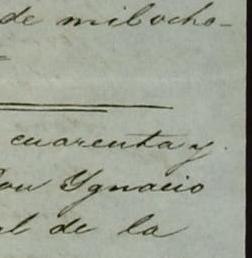 de mil ocho-
cuarenta y.
Don Ygnacio
l de la